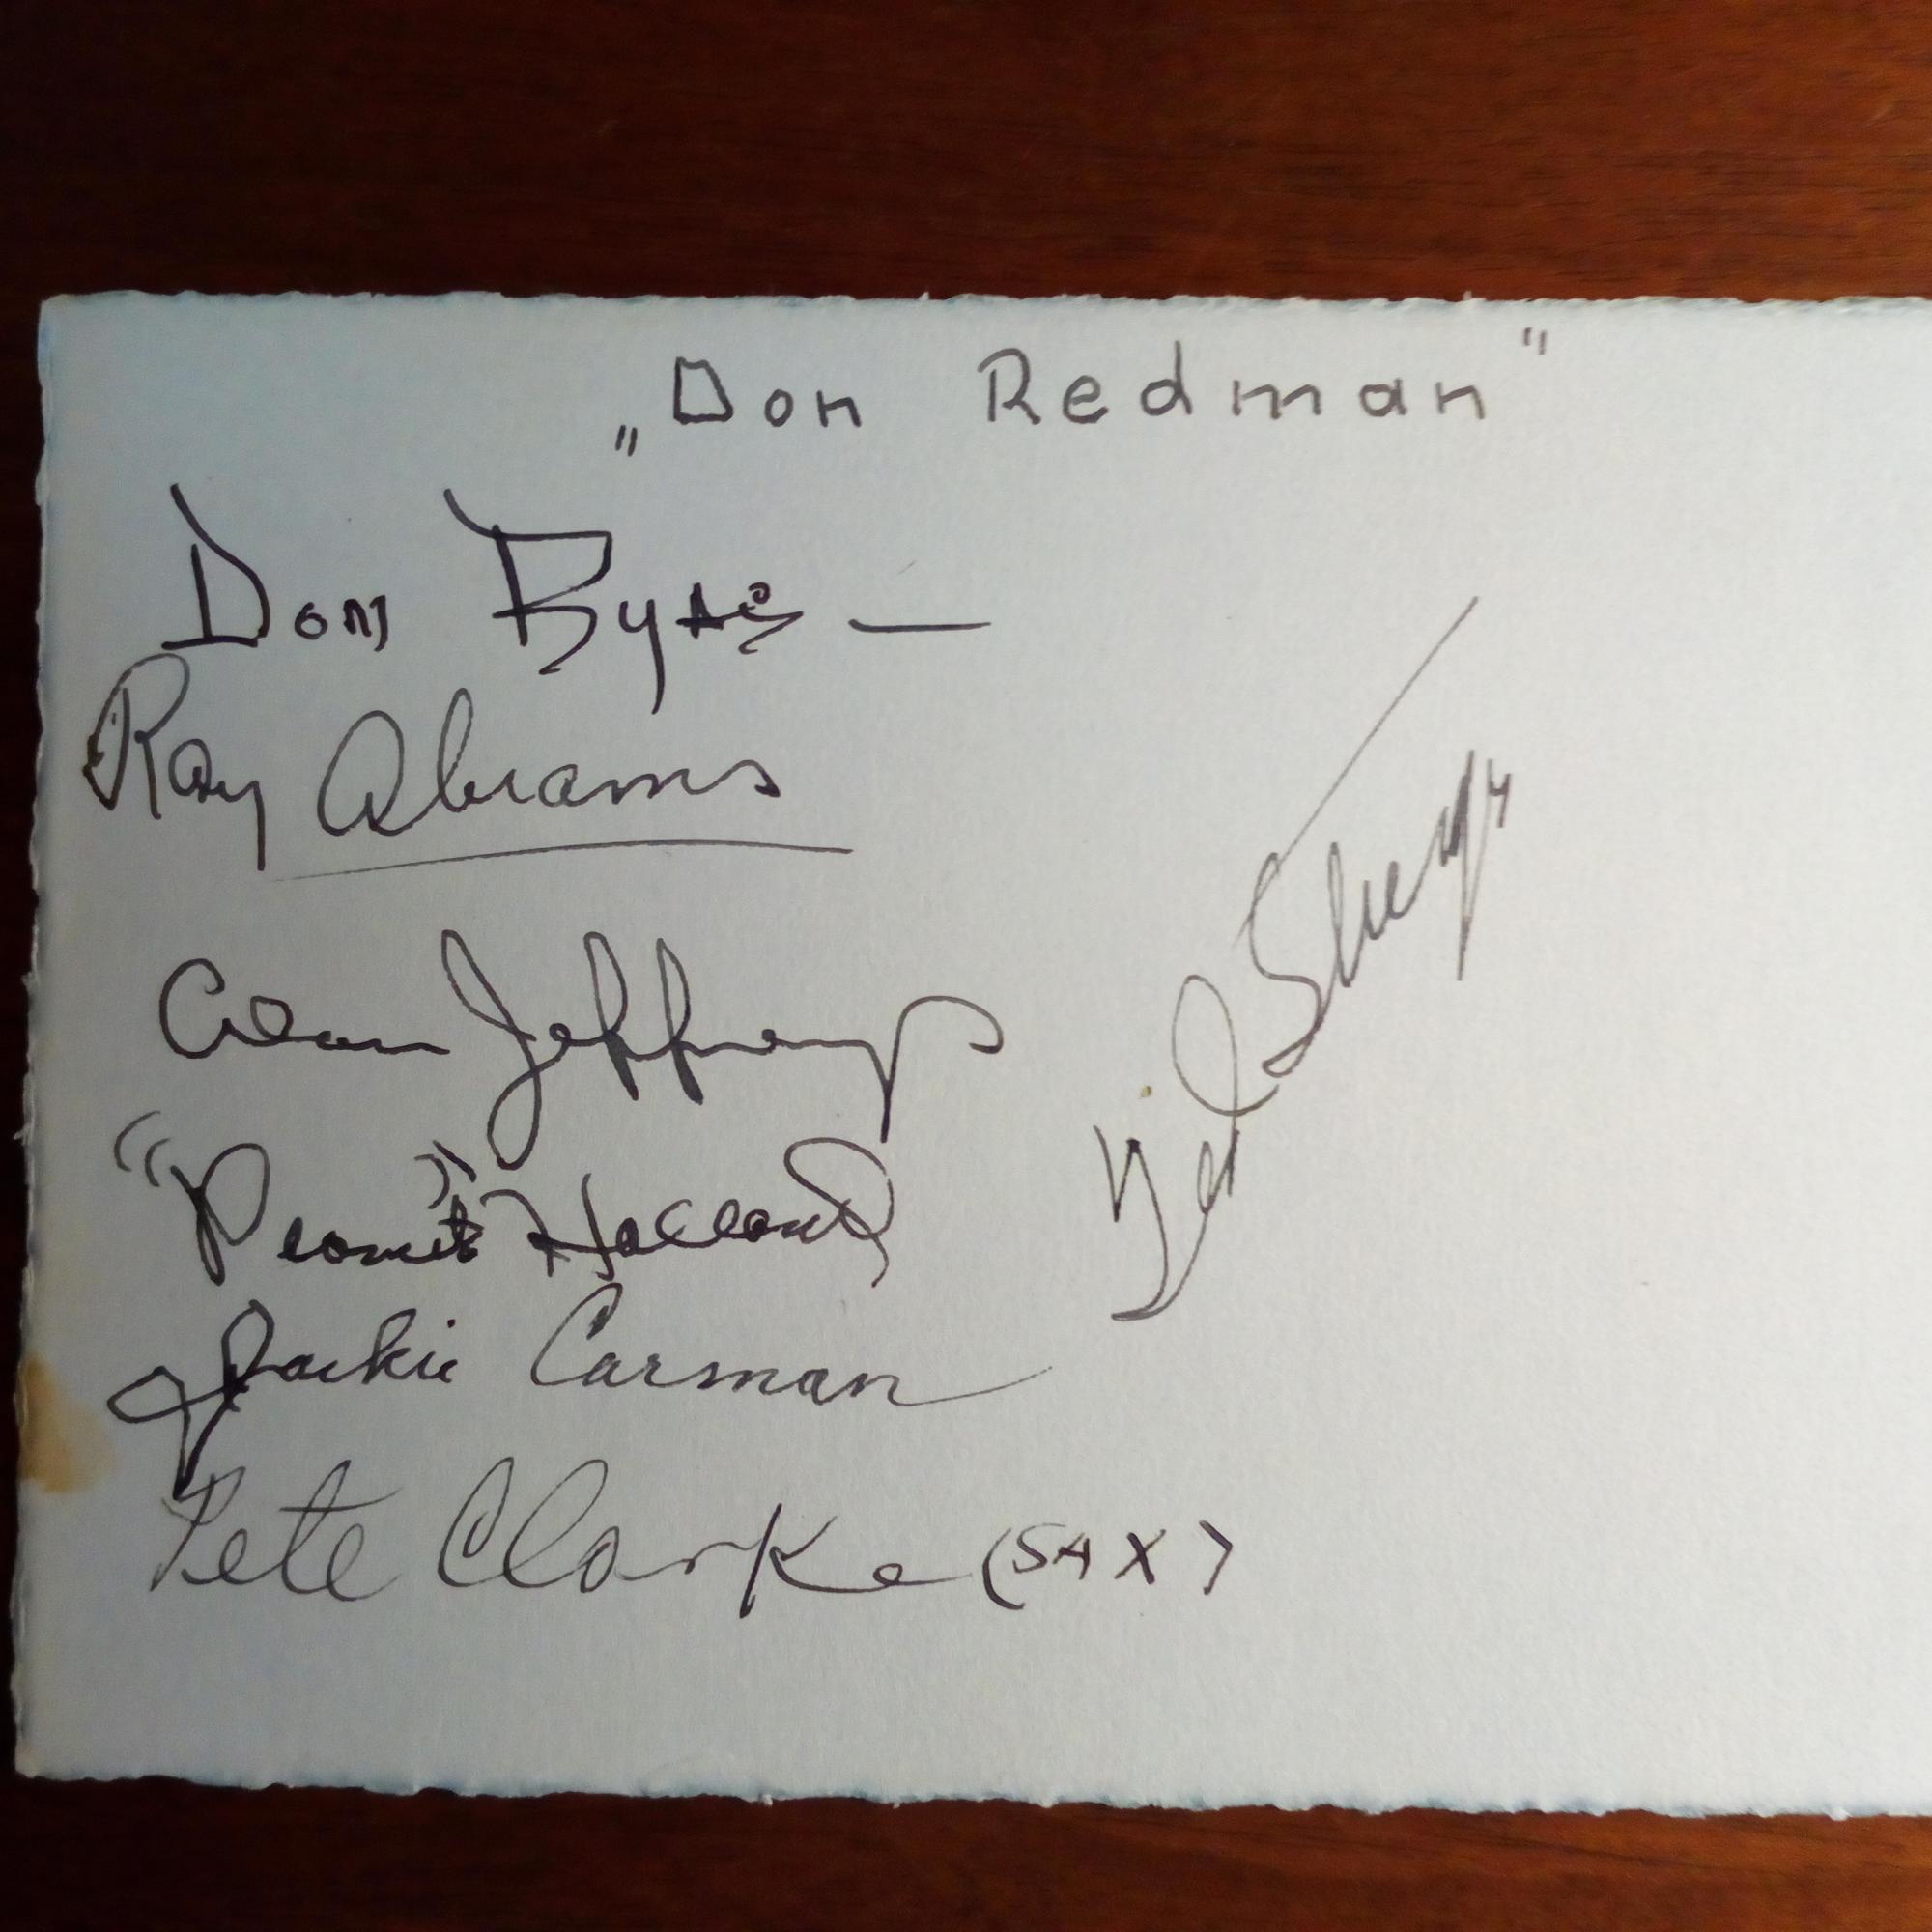 „Don Redman"
Don Byas —
Ray Abrams
Alan Jeffreys
"Peanuts" Holland
Jackie Carman
Pete Clarke (SAX)